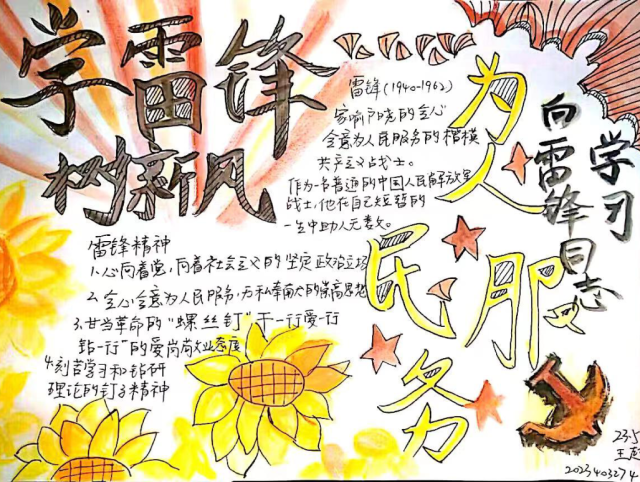 学雷锋
树新风
雷锋(1940-1962)
家喻户晓的全心
全意为人民服务的楷模
共产主义战士。
作为一名普通的中国人民解放军
战士,他在自己短暂的
一生中助人无数。
雷锋精神
1.心向着党,向着社会主义的坚定政治立场
2.全心全意为人民服务,为私奉献的崇高思想
3.甘当革命的“螺丝钉”干一行爱一行
钻一行”的爱岗敬业态度
4.刻苦学习和钻研
理论的钉子精神
为人
民服务
向雷锋同志
学习
23.5
2023403274